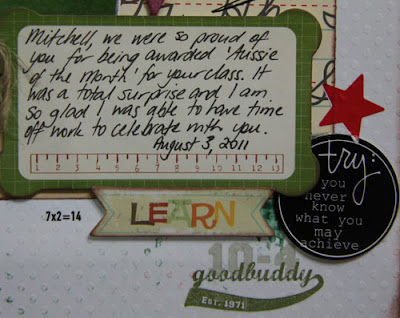 Mitchell, we were so proud of
you for being awarded 'Aussie
of the Month' for your class. It
was a total surprise and I am
so glad I was able to have time
off work to celebrate with you.
August 3, 2011
1 2 3 4 5 6 7 8 9 10 11 12 13
try:
you
never
know
what you
may
achieve
LEARN
7x2=14
10-4
goodbuddy
EST. 1971